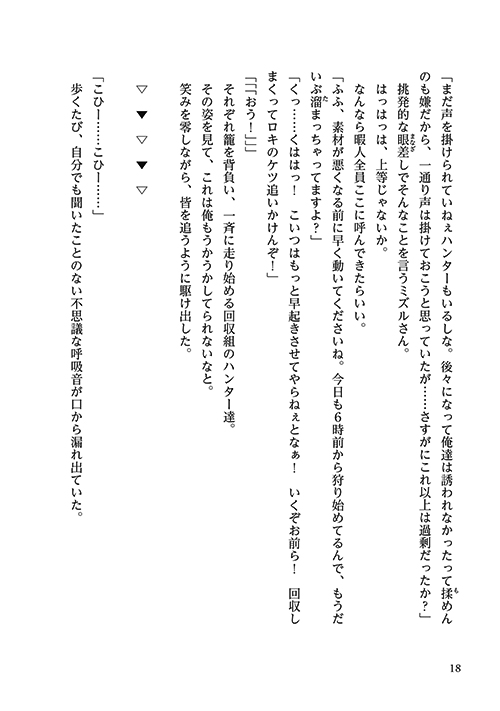 「まだ声を掛けられていねぇハンターもいるしな。後々になって俺達は誘われなかったって揉めん
のも嫌だから、一通り声は掛けておこうと思っていたが……さすがにこれ以上は過剰だったか？」
挑発的な眼差しでそんなことを言うミズルさん。
はっはっは、上等じゃないか。
なんなら暇人全員ここに呼んできたらいい。
「ふふ、素材が悪くなる前に早く動いてくださいね。今日も6時前から狩り始めてるんで、もうだ
いぶ溜まっちゃってますよ？」
「くっ……くははっ！　こいつはもっと早起きさせてやらねぇとなぁ！　いくぞお前ら！　回収し
まくってロキのケツ追いかけんぞ！」
「「「おう！」」」
それぞれ籠を背負い、一斉に走り始める回収組のハンター達。
その姿を見て、これは俺もうかうかしてられないなと。
笑みを零しながら、皆を追うように駆け出した。
▽　▼　▽　▼　▽
「こひー……こひー……」
歩くたび、自分でも聞いたことのない不思議な呼吸音が口から漏れ出ていた。
18